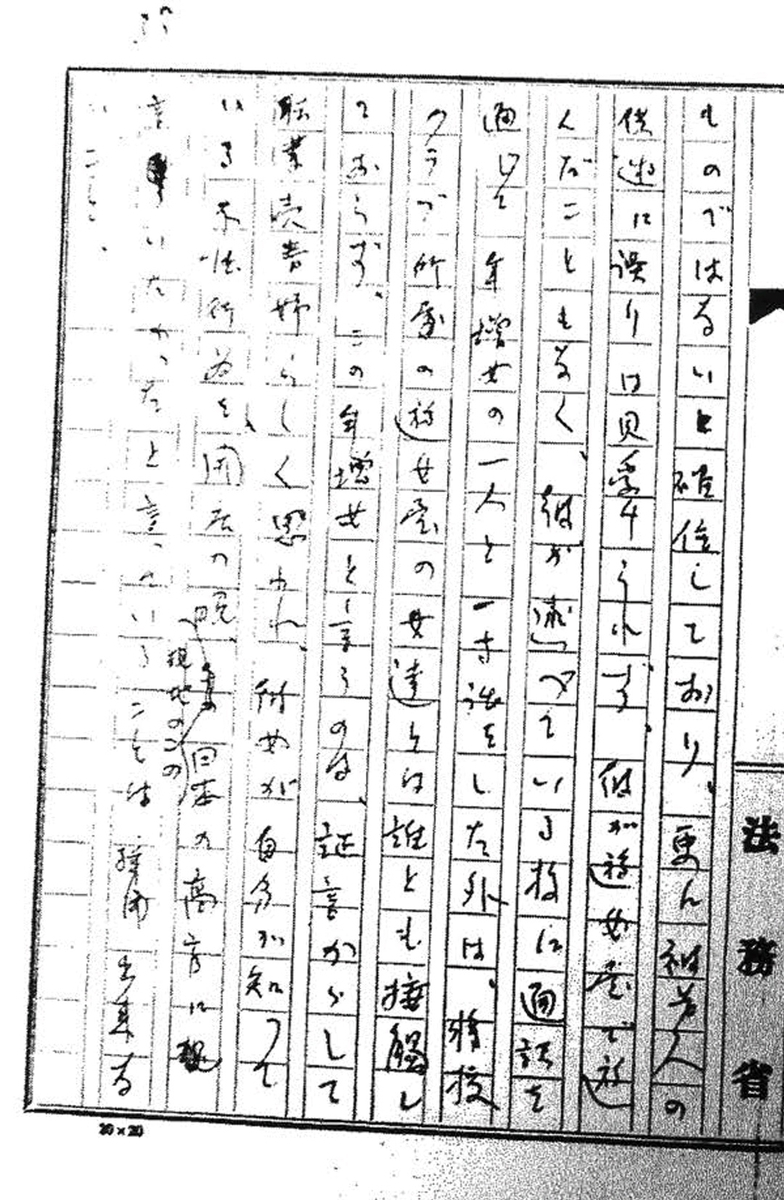 ものではないと確信しており、更に被告人の
供述に誤りは見受けられず、彼が遊女屋で遊
んだこともなく、彼が述べている様に通訳を
通じて年増女の一人と一寸話をした外は、将校
クラブ所属の遊女屋の女達とは誰とも接触し
ておらず、この年増女と言うのは、証言からして
職業売春婦らしく思われ、彼女が自分が知つて
いる不法行為を開店の
現地のこの
日本の高官に
言いたかつたと言つていることは 出来る
いこと、
法務省
20×20